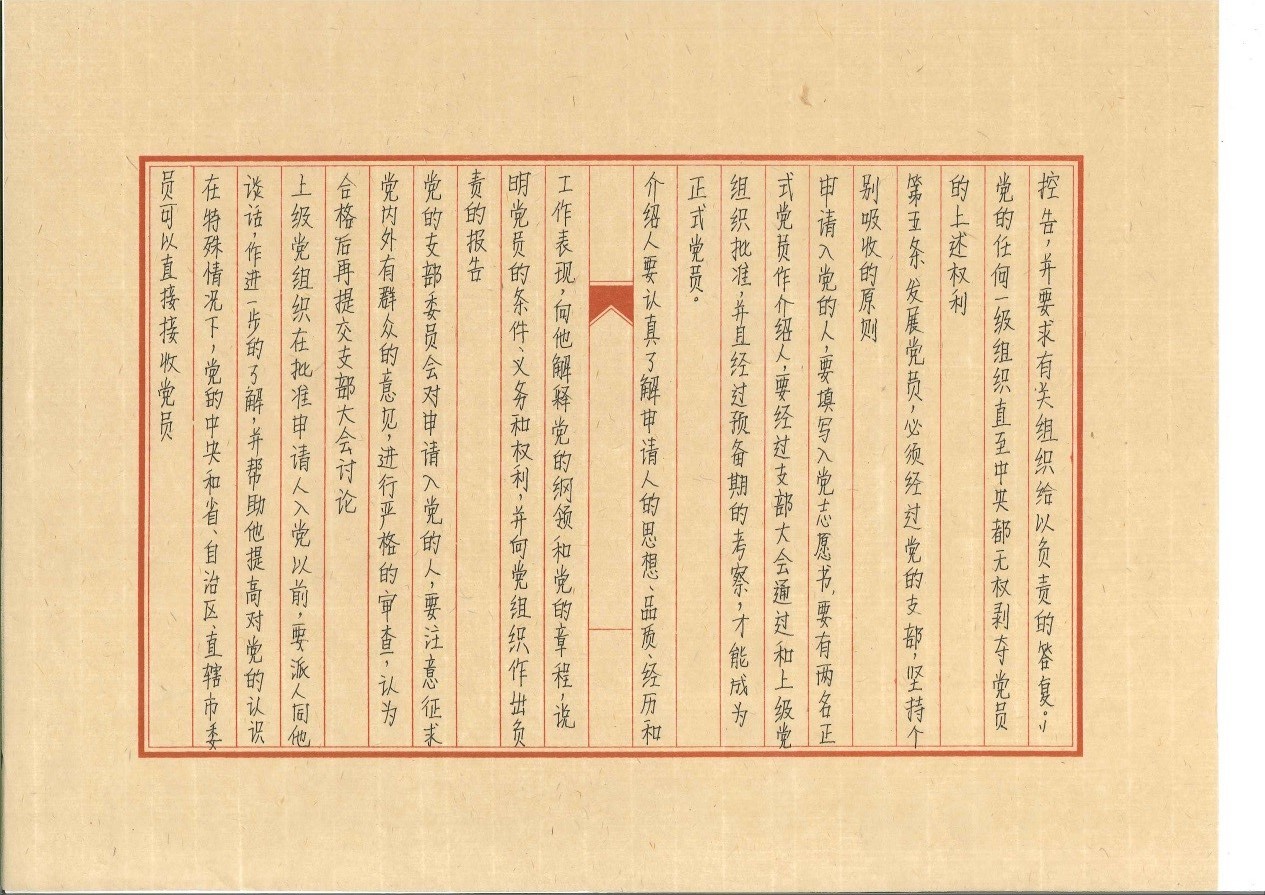 控告，并要求有关组织给以负责的答复。"
党的任何一级组织直至中央都无权剥夺党员
的上述权利
第五条 发展党员，必须经过党的支部，坚持个
别吸收的原则
申请入党的人，要填写入党志愿书，要有两名正
式党员作介绍人，要经过支部大会通过和上级党
组织批准，并且经过预备期的考察，才能成为
正式党员。
介绍人要认真了解申请人的思想、品质、经历和
工作表现，向他解释党的纲领和党的章程，说
明党员的条件、义务和权利，并向党组织作出负
责的报告
党的支部委员会对申请入党的人，要注意征求
党内外有群众的意见，进行严格的审查，认为
合格后再提交支部大会讨论
上级党组织在批准申请人入党以前，要派人同他
谈话，作进一步的了解，并帮助他提高对党的认识
在特殊情况下，党的中央和省、自治区、直辖市委
员可以直接接收党员